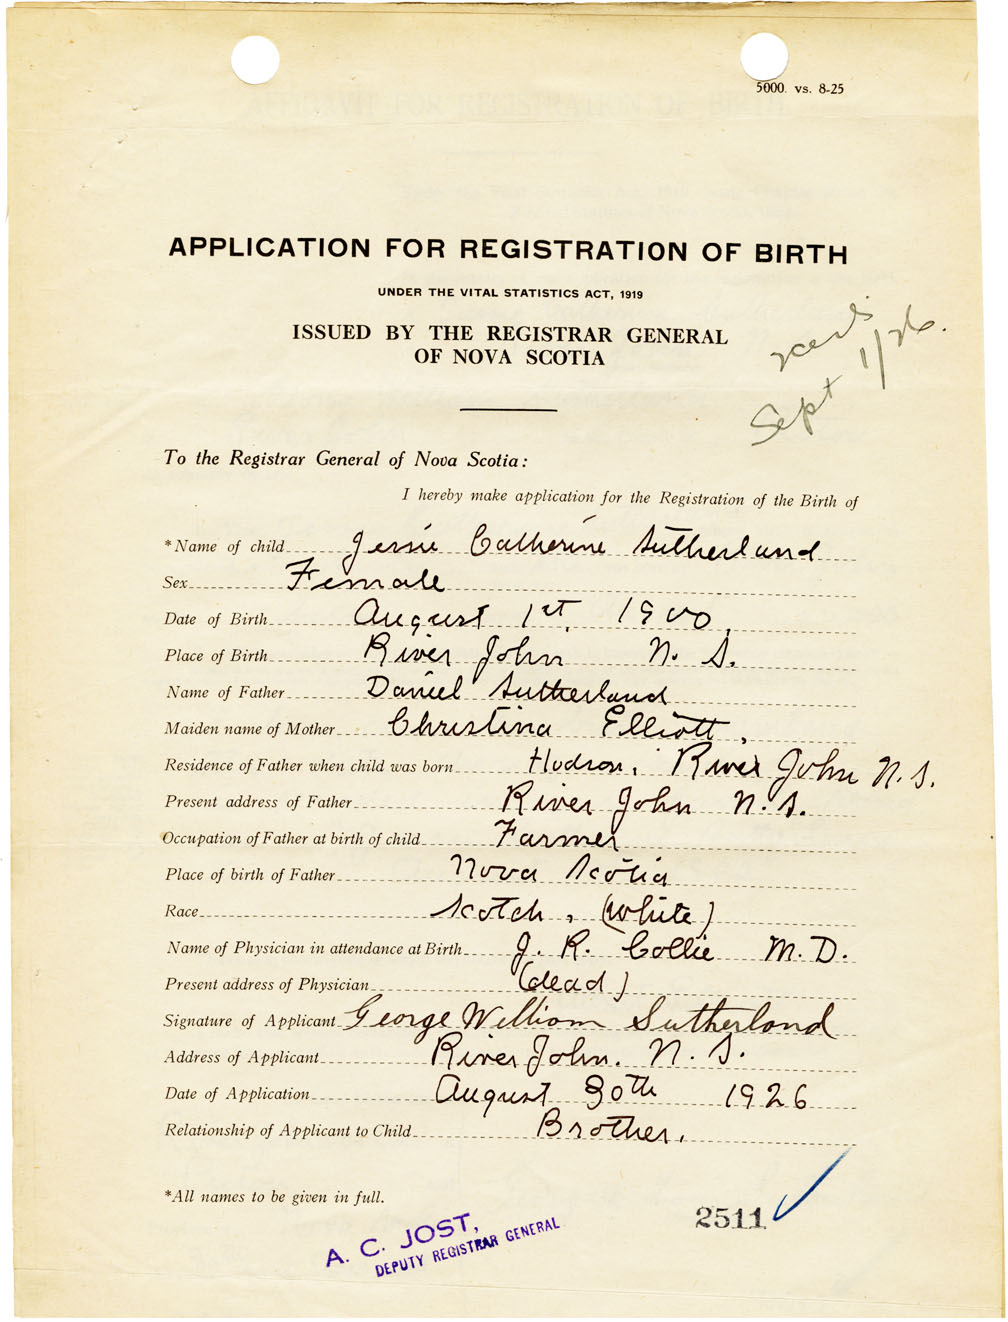 5000. vs. 8-25
APPLICATION FOR REGISTRATION OF BIRTH
UNDER THE VITAL STATISTICS ACT, 1919
ISSUED BY THE REGISTRAR GENERAL
OF NOVA SCOTIA
Sept 1/26.
To the Registrar General of Nova Scotia:
I hereby make application for the Registration of the Birth of
*Name of child Jessie Catherine Sutherland
Sex Female
Date of Birth August 1st, 1900,
Place of Birth River John N. S.
Name of Father Daniel Sutherland
Maiden name of Mother Christina Elliott,
Residence of Father when child was born Hodson, River John N. S.
Present address of Father River John N. S.
Occupation of Father at birth of child Farmer
Place of birth of Father Nova Scotia
Race Scotch, (White)
Name of Physician in attendance at Birth J. R. Collie M. D.
Present address of Physician (dead)
Signature of Applicant George William Sutherland
Address of Applicant River John. N. S.
Date of Application August 30th 1926
Relationship of Applicant to Child Brother.
*All names to be given in full.
2511
A. C. JOST,
DEPUTY REGISTRAR GENERAL